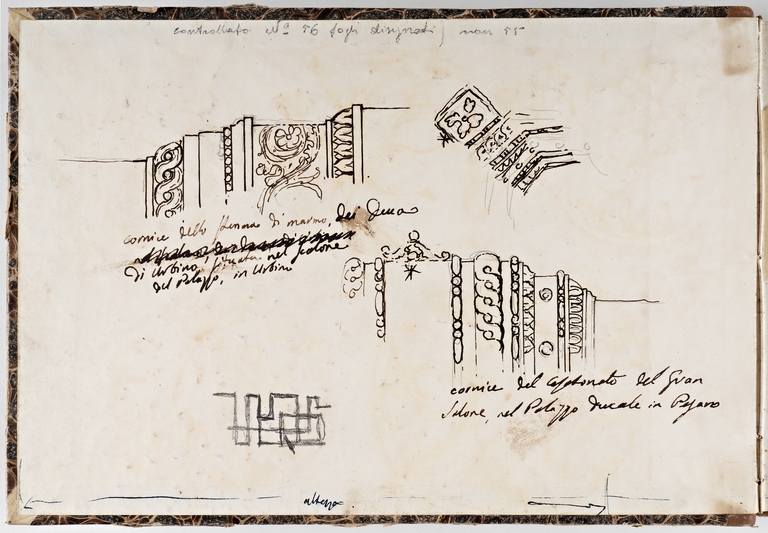 controllato n° 56 fogli disegnati, non 55
cornice dello stemma di marmo, dei Duca
di Urbino, situata nel scalone
del Palazzo, in Urbino
cornice del Casettonato del Gran
Salone, nel Palazzo Ducale in Pesaro
altezza